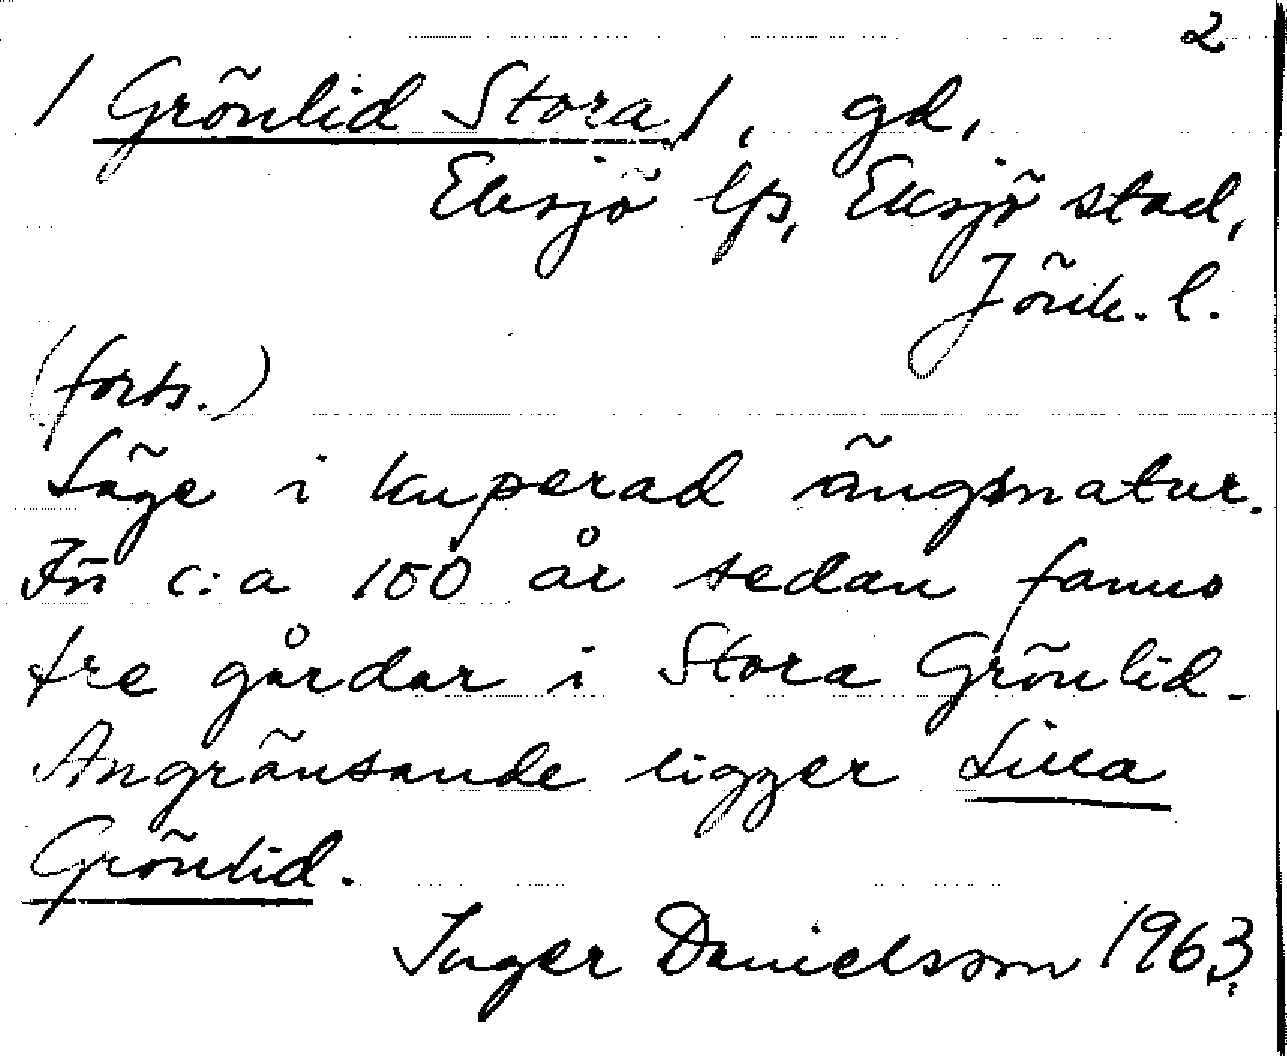 2
/ Grönlid Stora /, gd,
Eksjö lfs, Eksjö stad,
Jönk. l.
(forts.)
Läge i kuperad ängsnatur.
För c:a 100 år sedan fanns
tre gårdar i Stora Grönlid.
Angränsande ligger Lilla
Grönlid.
Inger Danielsson 1963.